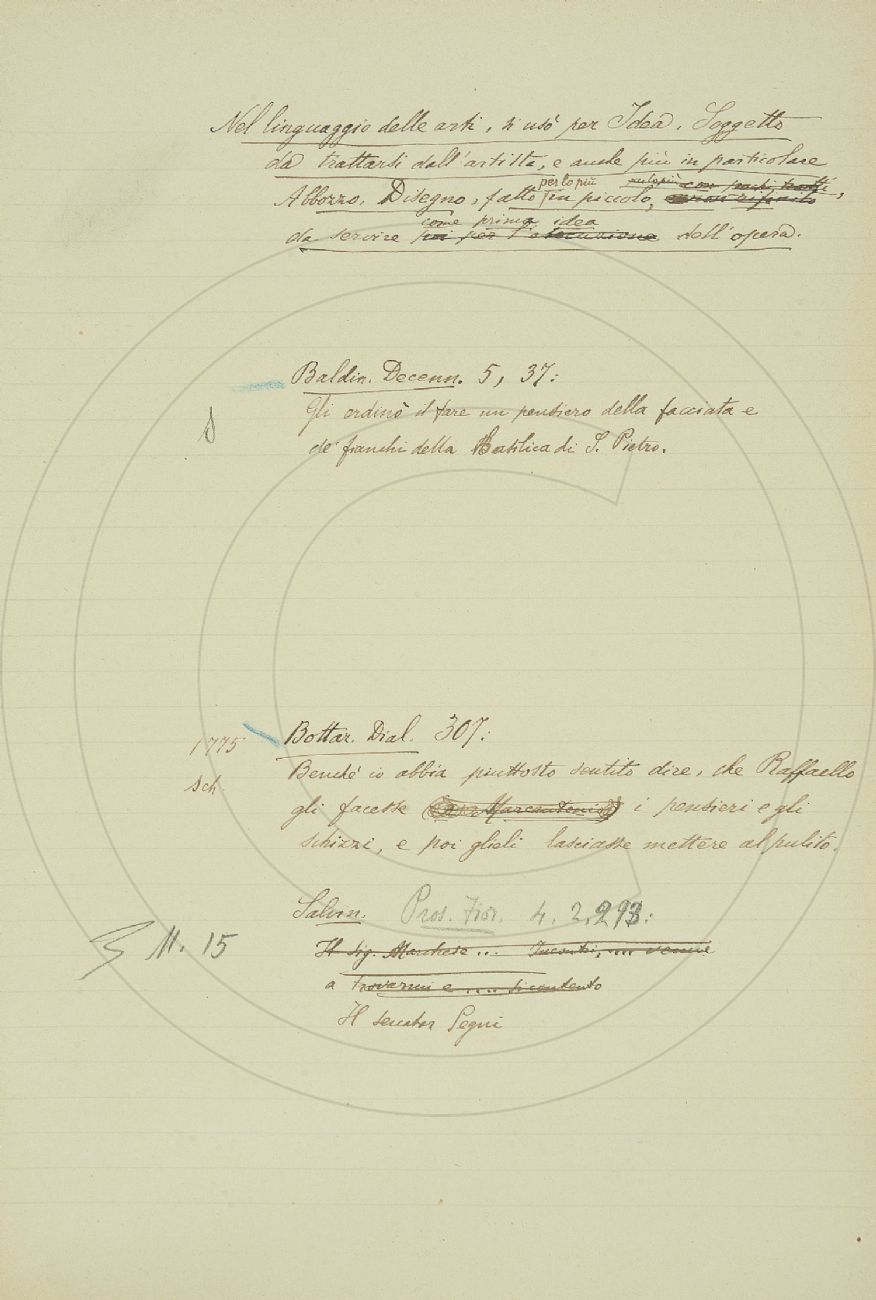 Nel linguaggio delle arti, si usò per Idea, Soggetto
da trattarsi dall'artista, e anche più in particolare
per lo più
Abbozzo, Disegno, fatto in piccolo,
come prima idea
da servire poi per l'esecuzione dell'opera.
Baldin. Decenn. 5, 37:
Gli ordinò il fare un pensiero della facciata e
de' fianchi della Basilica di S. Pietro.
1775 Bottar. Dial. 307:
Sch. Benchè io abbia piuttosto sentito dire, che Raffaello
gli facesse (a Marcantonio) i pensieri e gli
schizzi, e poi glieli lasciasse mettere al pulito.
Salvin. Pros. Fior. 4. 2. 293:
11. 15 Il Sig. Marchese ... Incontri, .... venne
a trovarmi e .... sicontento
Il senator Segni